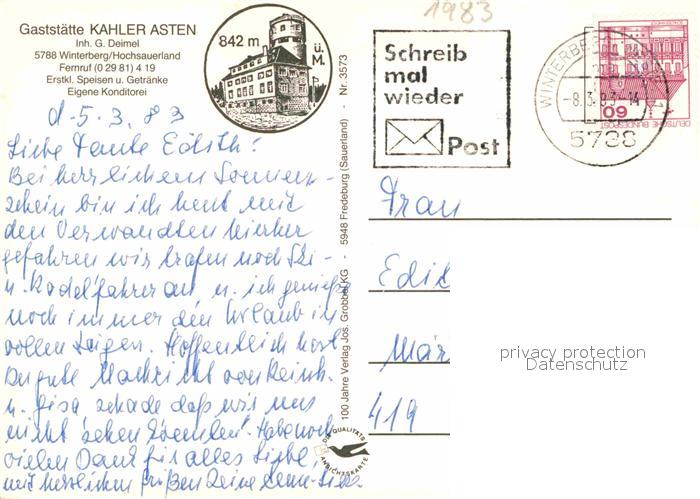 Gaststätte KAHLER ASTEN
Inh. G. Deimel
5788 Winterberg/Hochsauerland
Fernruf (0 29 81) 4 19
Erstkl. Speisen u. Getränke
Eigene Konditorei
842 m ü. M.
d. 5. 3. 83
Liebe Tante Edith!
Bei herrlichem Sonnen-
schein bin ich heut mit
den Verwandten hierher
gefahren wir trafen noch Ski-
u. Rodelfahrer an u. ich genieße
noch immer den Urlaub in
vollen Zügen. Hoffentlich hast
Du gute Nachricht von Reinh.
u. Gisa schade daß wir uns
nicht sehen konnten! Hab noch
vielen Dank für alles Liebe,
mit herzlichen Grüßen Deine
100 Jahre Verlag Jos. Grobbel KG 5948 Fredeburg (Sauerland) - Nr. 3573
DIE QUALITÄTS ANSICHTSKARTE
1983
Schreib
mal
wieder
Post
WINTERBERG
-8.3.83-14
5788
60
DEUTSCHE BUNDESPOST
Frau
Edit
Mär
419
privacy protection
Datenschutz